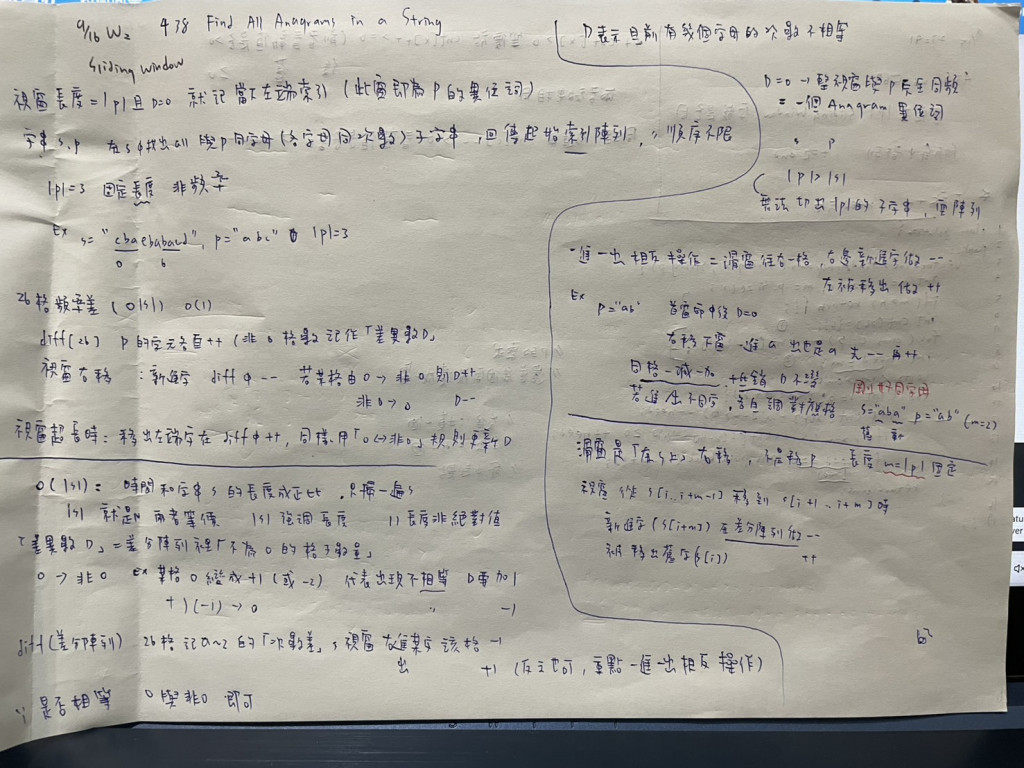 9/16 W2 438 Find All Anagrams in a String
Sliding window
視窗長度=|p| 且 D=0 就記當下左端索引 (此窗即為 p 的異位詞)
字串 s,p 在 s 中找出 all 與 p 同字母(各字母同次數)子字串, 回傳起始索引陣列, 順序不限
|p|=3 固定長度 非頻率
Ex s="cbaebabacd", p="abc" |p|=3
0 6
26格頻率差 (O|s|) O(1)
diff[26] p 的字元各自++ (非0格數記作「差異數D」
視窗右移 : 新進字 diff 中 -- 若某格由 0→非0 則 D++
非0→0 D--
視窗超長時: 移出左端字在 diff 中++, 同樣用「0↔非0」規則更新 D
O(|s|): 時間和字串 s 的長度成正比, 只掃一遍 s
|s| 就是 n 兩者等價 |s| 強調長度 || 長度非絕對值
「差異數 D」= 差分陣列裡「不為 0 的格子數量」
0→非0 Ex 某格 0 變成 +1 (或 -2) 代表出現不相等 D 要加 1
+1(-1)→0 " -1
diff(差分陣列) 26格記 a~z 的「次數差」 s 視窗右進某字該格 -1
出 +1 (反之也可, 重點一進一出相反操作)
∵ 是否相等 0 與非0 即可
D 表示目前有幾個字母的次數不相等
D=0 → 整視窗與 p 完全同頻
= 一個 Anagram 異位詞
s p
|p|>|s|
無法切出 |p| 的子字串, 空陣列
一進一出相反操作 = 滑窗往右一格, 右邊新進字做 --
左被移出做 ++
Ex p="ab" 首窗命中後 D=0
右移下窗 一進 a 出也是 a 先 -- 再 ++
同格一減一加, 抵銷 D 不變
剛好同字母
若進出不同字, 各自調對應格
s="aba" p="ab" (m=2)
舊 新
滑窗是「在 s 上」右移, 不是移 p 長度 m=|p| 固定
視窗從 s[i..i+m-1] 移到 s[i+1..i+m] 時
新進字 (s[i+m]) 在差分陣列做 --
被移出舊字 (s[i]) ++